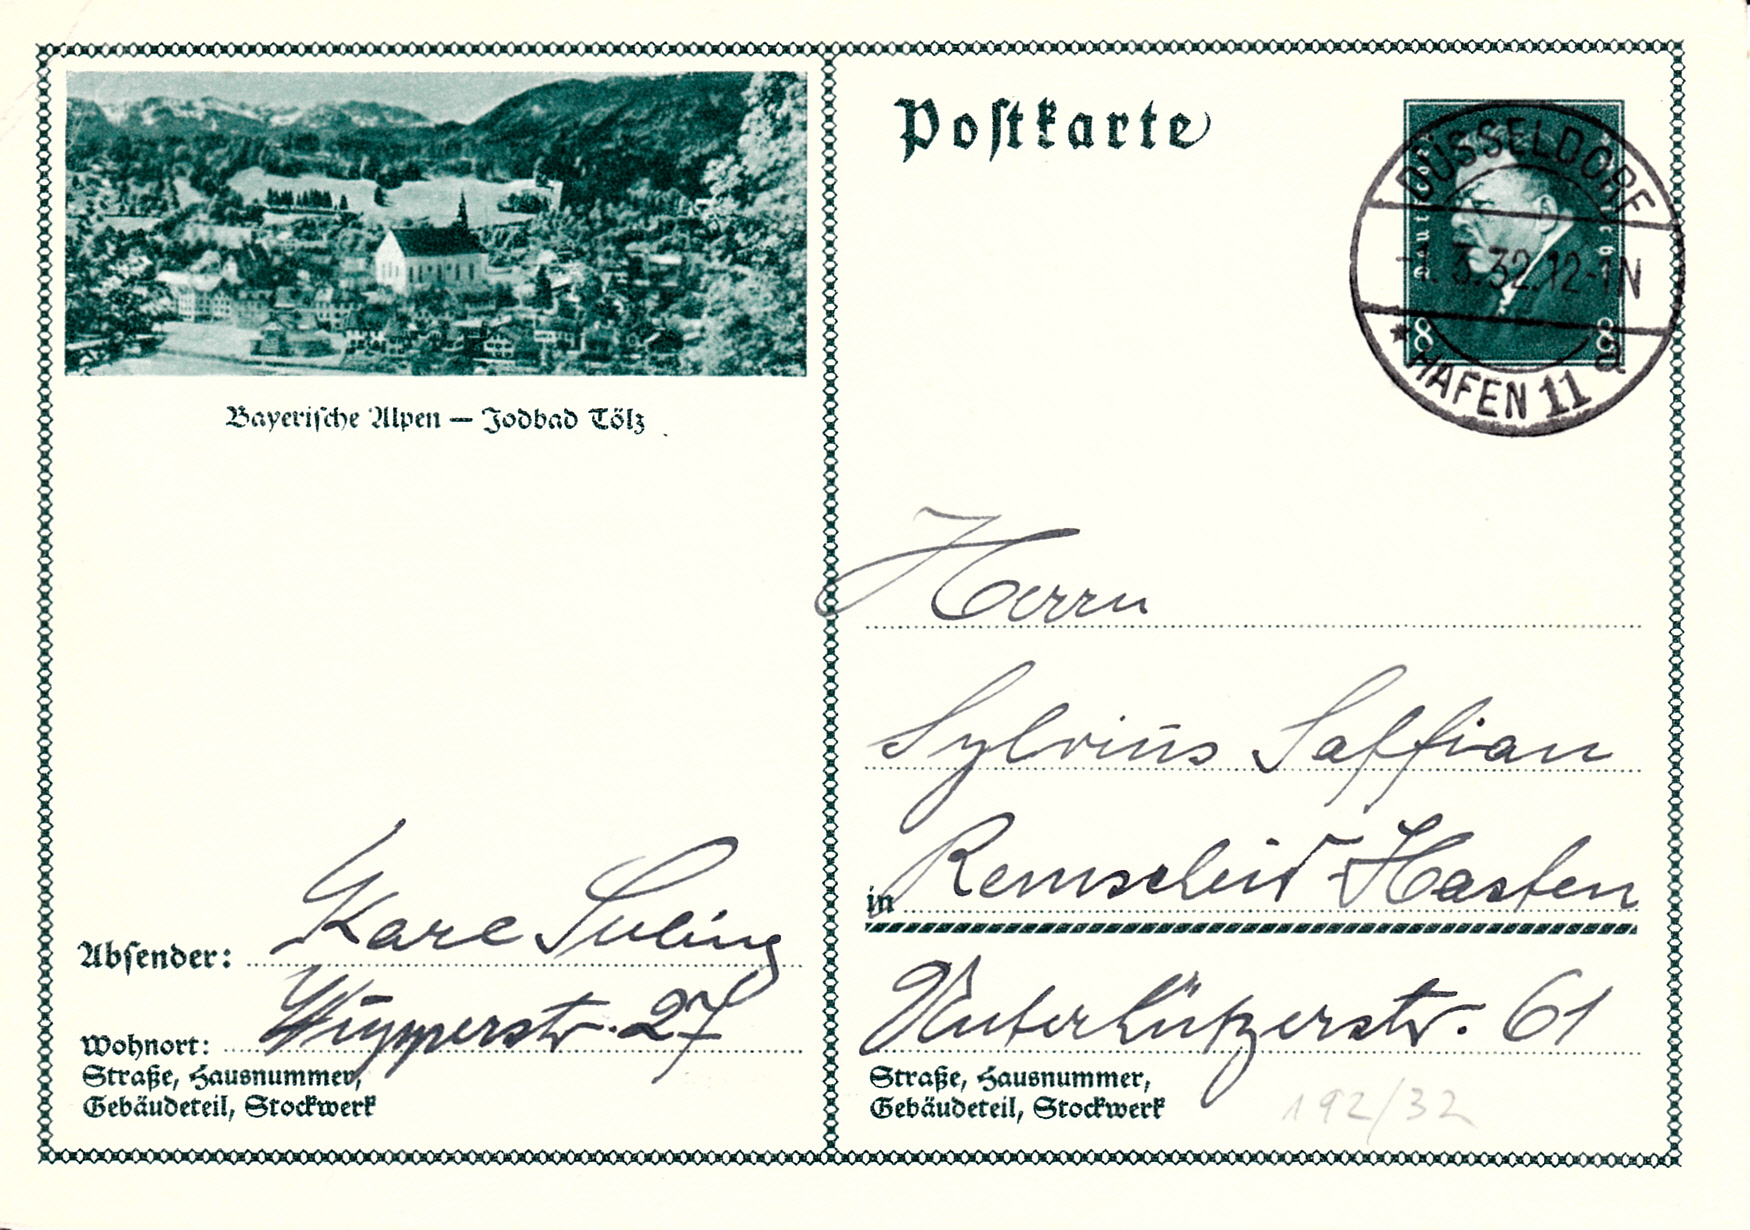 Postkarte
DÜSSELDORF
-1.3.32.12-1N
* HAFEN 11 a
8 8
Bayerische Alpen — Jodbad Tölz
Herrn
Sylvius Saffian
in Remscheid-Hasten
Unterhützerstr. 61
Straße, Hausnummer,
Gebäudeteil, Stockwerk
192/32
Absender: Karl Suling
Wohnort: Wupperstr. 27
Straße, Hausnummer,
Gebäudeteil, Stockwerk